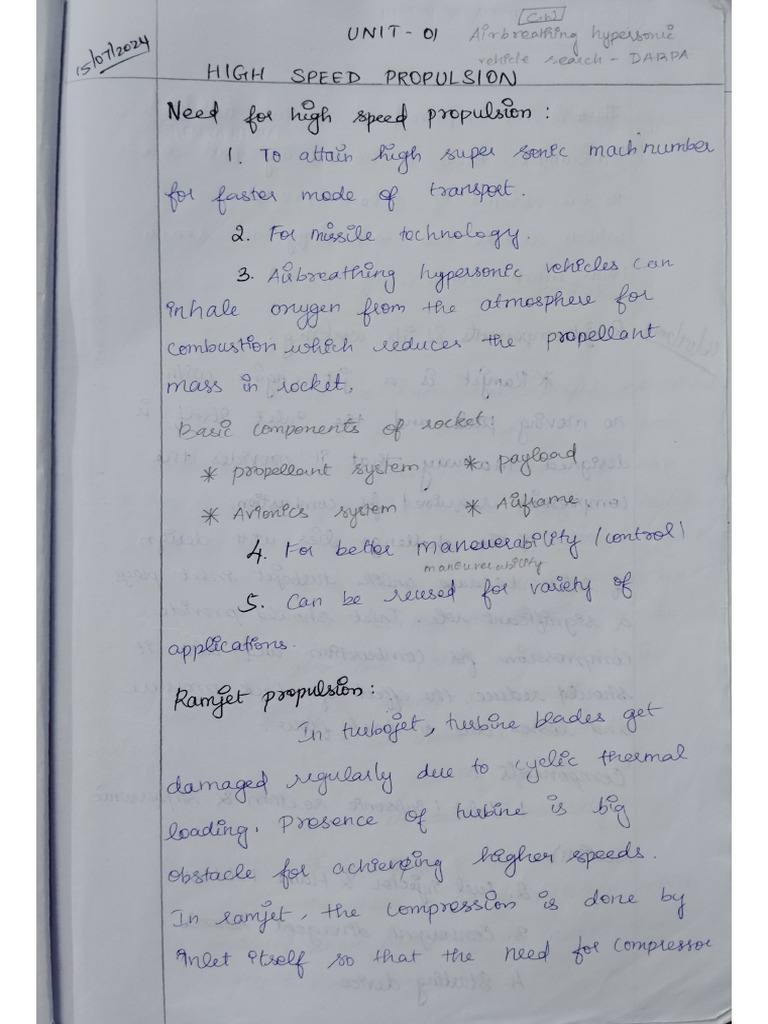 15/07/2024
UNIT - 01
Airbreathing hypersonic
vehicle search - DARPA
HIGH SPEED PROPULSION
Need for high speed propulsion :
1. To attain high super sonic mach number
for faster mode of transport.
2. For missile technology.
3. Airbreathing hypersonic vehicles can
inhale oxygen from the atmosphere for
combustion which reduces the propellant
mass in rocket.
Basic components of rocket:
* propellant system * payload
* Avionics system * Airframe.
4. For better maneuverability (control)
maneuverability
5. Can be reused for variety of
applications.
Ramjet propulsion :
In turbojet, turbine blades get
damaged regularly due to cyclic thermal
loading. Presence of turbine is big
obstacle for achieving higher speeds.
In ramjet, the compression is done by
inlet itself so that the need for compressor